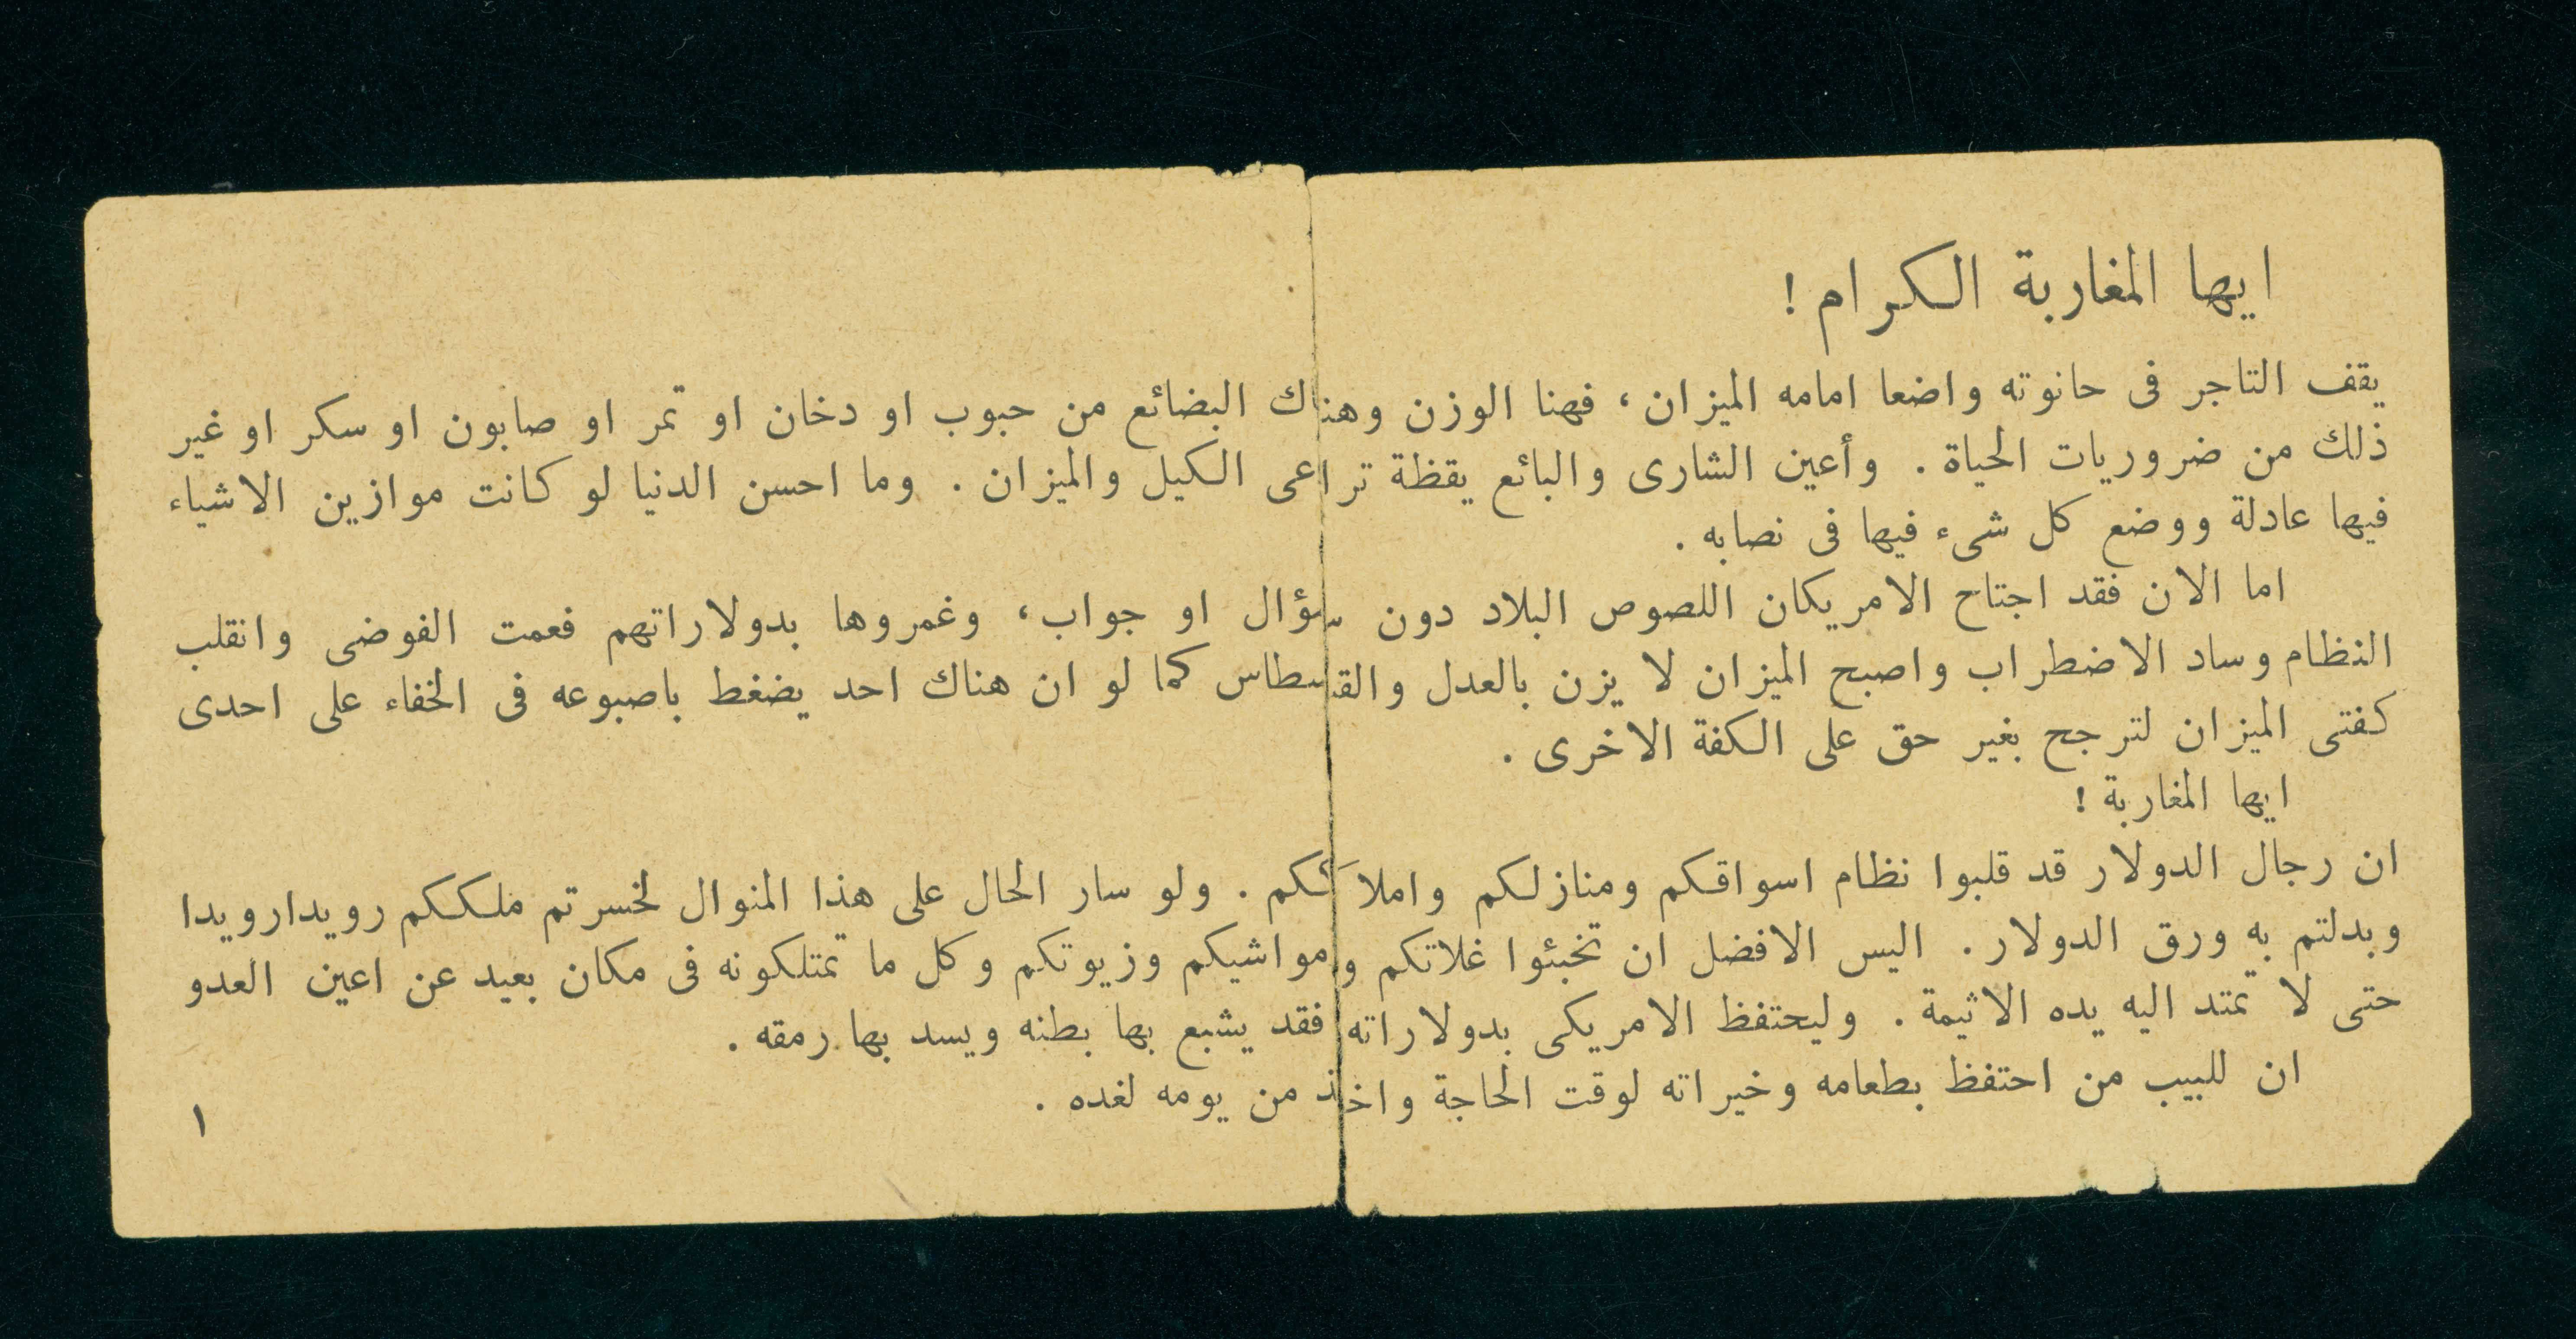 ايها المغاربة الكرام !
يقف التاجر فى حانوته واضعا امامه الميزان، فهنا الوزن وهناك البضائع من حبوب او دخان او تمر او صابون او سكر او غير
ذلك من ضروريات الحياة . وأعين الشارى والبائع يقظة تراعى الكيل والميزان . وما احسن الدنيا لو كانت موازين الاشياء
فيها عادلة ووضع كل شىء فيها فى نصابه .
اما الان فقد اجتاح الامريكان اللصوص البلاد دون سؤال او جواب، وغمروها بدولاراتهم فعمت الفوضى وانقلب
النظام وساد الاضطراب واصبح الميزان لا يزن بالعدل والقسطاس كما لو ان هناك احد يضغط باصبوعه فى الخفاء على احدى
كفتى الميزان لترجح بغير حق على الكفة الاخرى .
ايها المغاربة !
ان رجال الدولار قد قلبوا نظام اسواقكم ومنازلكم واملاككم . ولو سار الحال على هذا المنوال لخسرتم ملككم رويدارويدا
وبدلتم به ورق الدولار . اليس الافضل ان تخبئوا غلاتكم ومواشيكم وزيوتكم وكل ما تمتلكونه فى مكان بعيد عن اعين العدو
حتى لا تمتد اليه يده الاثيمة . وليحتفظ الامريكى بدولاراته فقد يشبع بها بطنه ويسد بها رمقه .
ان للبيب من احتفظ بطعامه وخيراته لوقت الحاجة واخذ من يومه لغده .
١